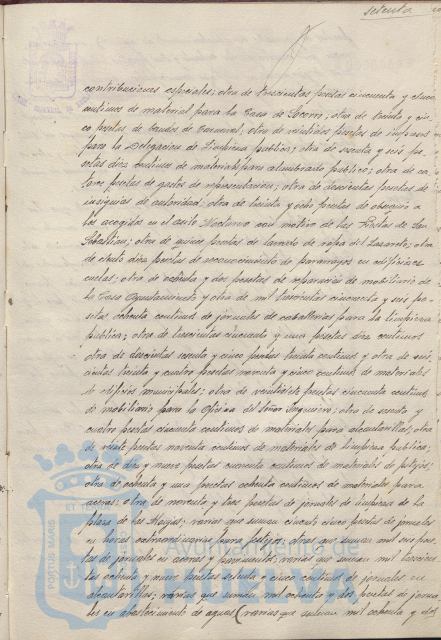 setenta
contribuciones especiales; otra de trescientas pesetas cincuenta y cinco
centimos de material para la Casa de Socorro; otra de treinta y cin-
co pesetas de bandos de Carnaval; otra de veintiseis pesetas de impresos
para la Delegacion de Limpieza publica; otra de sesenta y seis pe-
setas diez centimos de materiales para alumbrado publico; otra de ca-
torce pesetas de gastos de representacion; otra de doscientas pesetas de
insignias de autoridad; otra de treinta y ocho pesetas de obsequio a
los acogidos en el asilo Nocturno con motivo de las Fiestas de San
Sebastian; otra de quince pesetas de lavado de ropa del Lazareto; otra
de ciento diez pesetas de reconocimiento de pararrayos en edificios es-
cuelas; otra de ochenta y dos pesetas de reparacion de mobiliario de
la Casa Ayuntamiento y otra de mil trescientas cincuenta y seis pe-
setas ochenta centimos de jornales de caballerias para la limpieza
publica; otra de trescientas cincuenta y una pesetas diez centimos
otra de doscientas sesenta y cinco pesetas treinta centimos y otra de seis-
cientas treinta y cuatro pesetas noventa y cinco centimos de materiales
de edificios municipales; otra de veintisiete pesetas cincuenta centimos
de mobiliario para la Oficina del Señor Ingeniero; otra de sesenta y
cuatro pesetas cincuenta centimos de materiales para alcantarillas; otra
de veinte pesetas noventa centimos de materiales de limpieza publica;
otra de diez y nueve pesetas cuarenta centimos de materiales de festejos;
otra de ochenta y una pesetas ochenta centimos de materiales para
aceras; otra de noventa y tres pesetas de jornales de limpieza de la
plaza de las Monjas; varias que suman cincuenta cinco pesetas de jornales
en horas extraordinarias para festejos; otras que suman mil seis pese-
tas de jornales en aceras y pavimento; varias que suman mil trescien-
tas ochenta y nueve pesetas setenta y cinco centimos de jornales en
alcantarillas; varias que suman mil ochenta y dos pesetas de jorna-
les en abastecimiento de aguas (varias que suman mil ochenta y dos
Ayuntamiento de
PORTUS MARIS